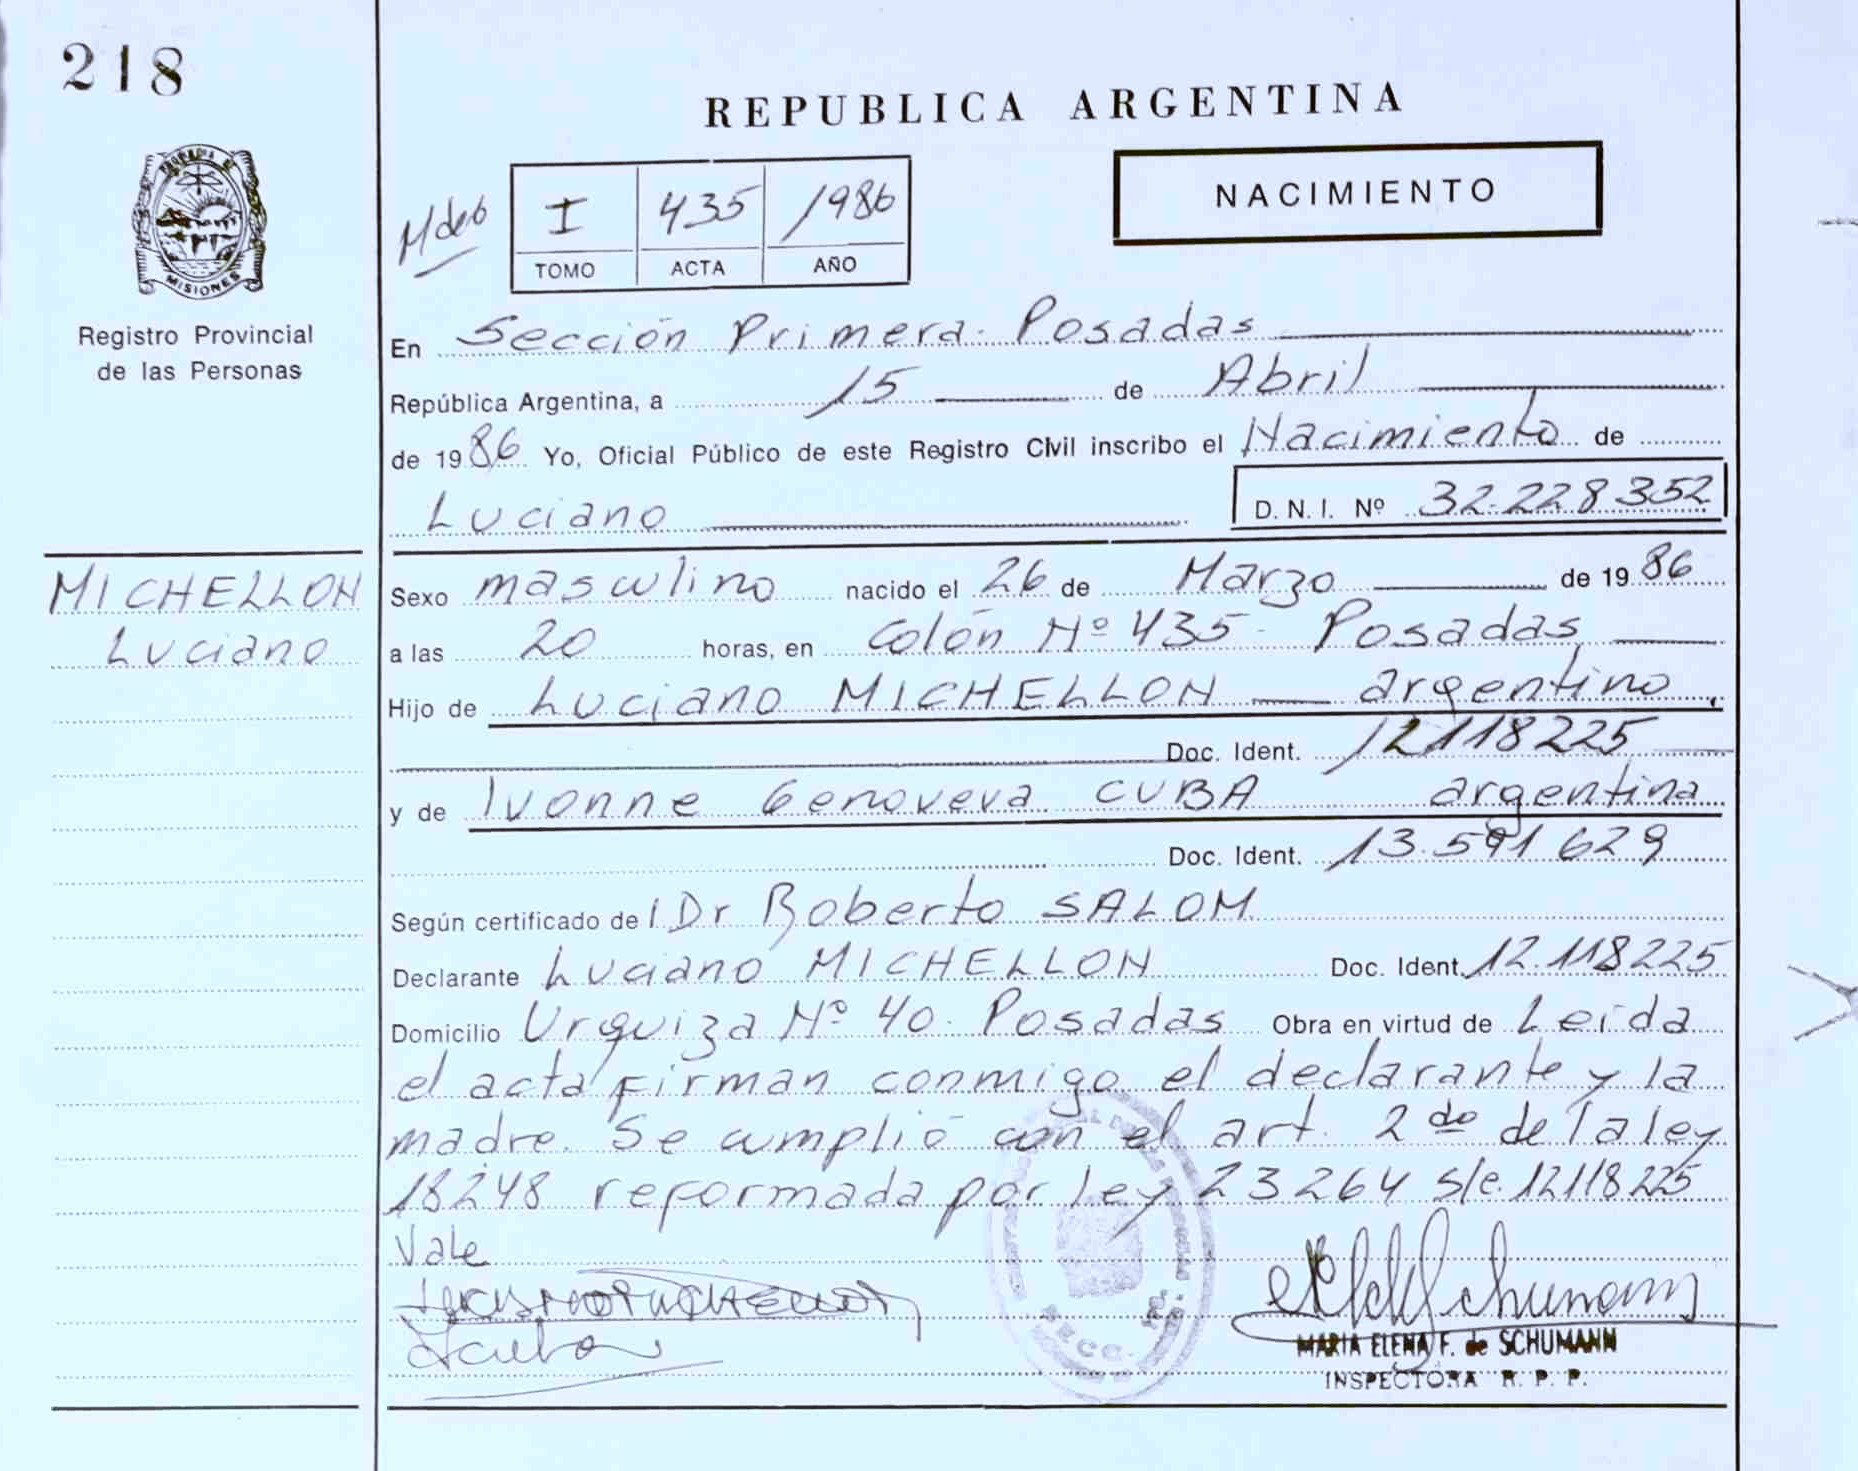 218
REPUBLICA ARGENTINA
PROVINCIA DE
MISIONES
Registro Provincial
de las Personas
I 435 1986
TOMO ACTA AÑO
NACIMIENTO
En Sección Primera - Posadas
República Argentina, a 15 de Abril
de 1986 Yo, Oficial Público de este Registro Civil inscribo el Nacimiento de
Luciano D. N. I. Nº 32.228.352
MICHELLON
Luciano
Sexo masculino nacido el 26 de Marzo de 1986
a las 20 horas, en Colón Nº 435 - Posadas
Hijo de Luciano MICHELLON argentino,
Doc. Ident. 12118225
y de Ivonne Genoveva CUBA argentina
Doc. Ident. 13.591.629
Según certificado de l Dr Roberto SALOM
Declarante Luciano MICHELLON Doc. Ident. 12.118225
Domicilio Urquiza Nº 40. Posadas Obra en virtud de Leída
el acta firman conmigo el declarante y la
madre. Se cumplió con el art. 2do de la ley
18248 reformada por ley 23264 s/e. 12118225
Vale
MARIA ELENA F. de SCHUMANN
INSPECTORA R. P. P.